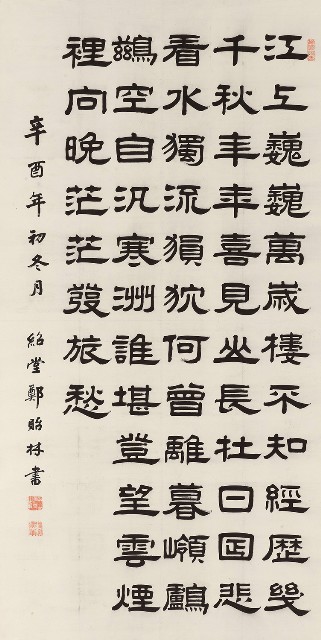 江上巍巍萬歲樓不知經歷幾
千秋年年喜見山長在日日悲
看水獨流猿狖何曾離暮嶺鸕
鷀空自汎寒洲誰堪登望雲煙
裡向晚茫茫發旅愁
辛酉年初冬月 紹堂鄭貽林書